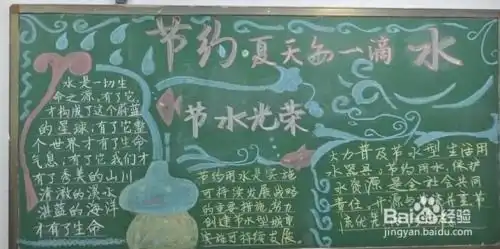 节约·夏天每一滴水
节水光荣
水是一切生
命之源，有了它，
才构成了这个蔚蓝
的星球，有了它整
个世界才有了生命
气息，有了它我们才
有了秀美的山川
清澈的溪水
湛蓝的海洋
才有了生命
节约用水是实施
可持续发展战略
的重要措施，努力
创建节水型城市
实施可持续发展
大力普及节水型生活用
水器具，节约用水，保护
水资源，是全社会共同
责任，开源与节流并重节
流优先
Baidu经验
jingyan.baidu.com